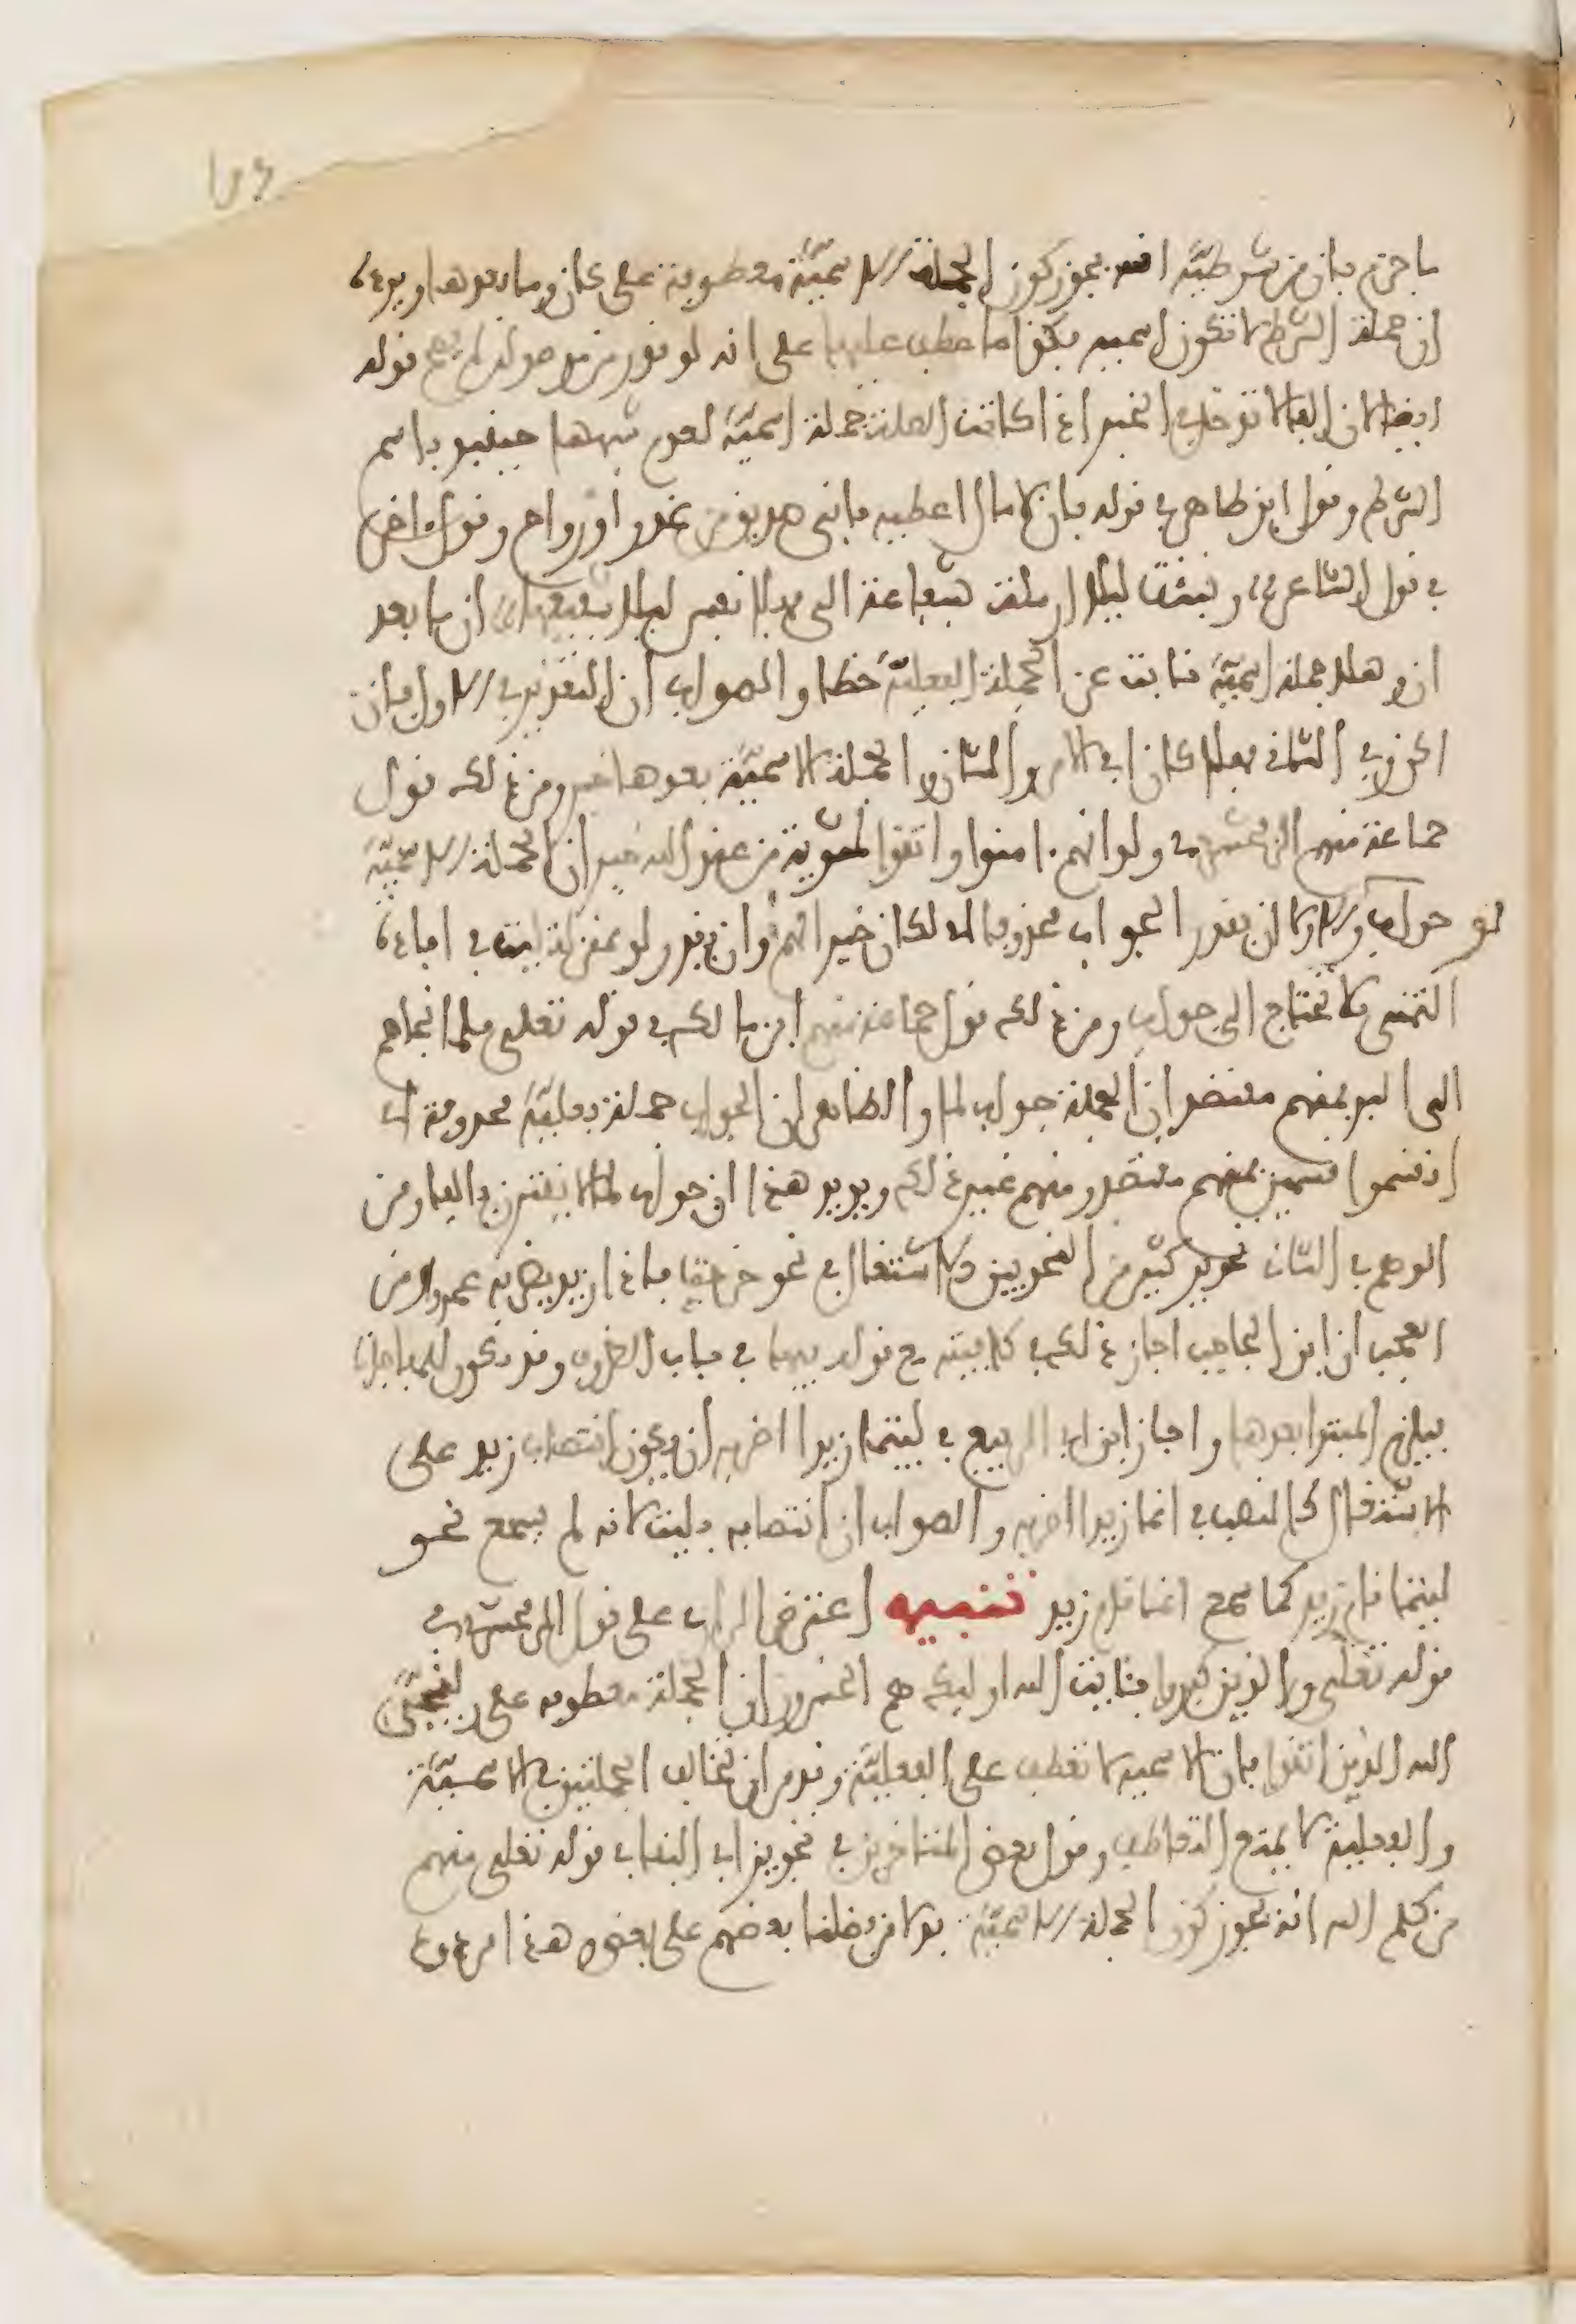 ما جزم بان من شرطية انه يجوز كون الجملة الاسمية معطوفة على كان وما بعدها ويرده
ان جملة الشرط لا تكون اسمية فكذا ما عطف عليها على انه لو قدر من موصولة لم يصح قوله
ايضا لان الفا لا تدخل في الخبر اذا كانت الصلة جملة اسمية لعدم شبهها حينئذ باسم
الشرط وقول ابن طاهر في قوله فان لا مال اعطيه فاني صديق من غدو او رواح وقول اخرين
في قول الشاعر ونبئت ليلى ارسلت بشفاعة الي فهلا نفس ليلى شفيعها ان ما بعد
ان وهلا جملة اسمية نابت عن الجملة الفعلية خطا والصواب ان التقدير في الاول فان
اكن وفي الثاني فهلا كان اي الامر والشان والجملة الاسمية بعدها خبر ومن ذلك قول
جماعة منهم الزمخشري في ولو انهم ءامنوا واتقوا لمثوبة من عند الله خير ان الجملة الاسمية
لو جواب والاولى ان يقدر الجواب محذوفا اي لكان خيرا لهم وان يقدر لو بمنزلة ليت في افادة
التمني فلا تحتاج الى جواب ومن ذلك قول جماعة منهم ابن مالك في قوله تعلى فلما انجاهم
الى البر فمنهم مقتصد ان الجملة جواب لما والظاهر ان الجواب جملة فعلية محذوفة اي
انقسموا قسمين فمنهم مقتصد ومنهم غير ذلك ويويد هذا ان جواب لما لا يقترن بالفا ومن
الوهم في الثاني تجويز كثير من النحويين الاشتغال في نحو خرجت فاذا زيد يضربه عمرو ومن
العجب ان ابن الحاجب اجاز ذلك في كافيته مع قوله فيها في باب الظروف وقد تكون للمفاجاة
فيلزم المبتدا بعدها واجاز ابن ابي الربيع في ليتما زيدا اضربه ان يكون انتصاب زيد على
الاشتغال كالنصب في انما زيدا اضربه والصواب ان انتصابه بليت لانه لم يسمع نحو
ليتما قام زيد كما سمع انما قام زيد تنبيه اعترض الرازي على قول الزمخشري في
قوله تعلى والذين كفروا بئايت الله اوليك هم الخسرون ان الجملة معطوفة على وينجي
الله الذين اتقوا بان الاسمية لا تعطف على الفعلية وقد مر ان تخالف الجملتين في الاسمية
والفعلية لا يمنع التعاطف وقول بعض المتاخرين في تجويز ابي البقا في قوله تعلى منهم
من كلم الله انه يجوز كون الجملة الاسمية بدلا من فضلنا بعضهم على بعض هذا مردود